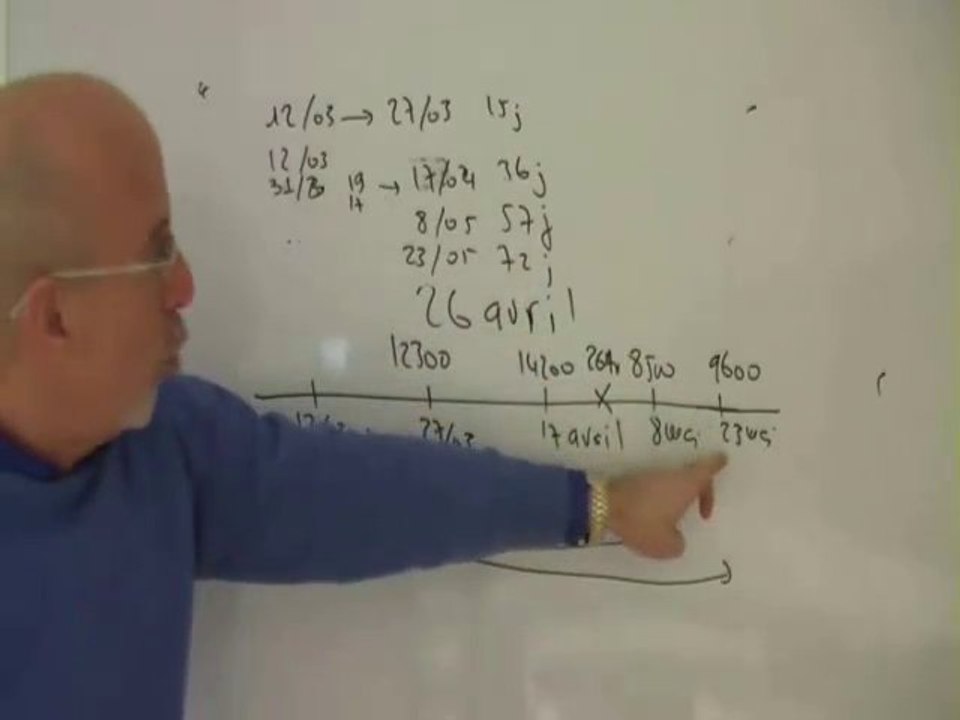 12/03 → 27/03 15j
12/03
31/03 19 → 17/04 36j
17
8/05 57j
23/05 72j
26 avril
12300 14200 8500 9600
27/03 17 avril 8 mai 23 mai